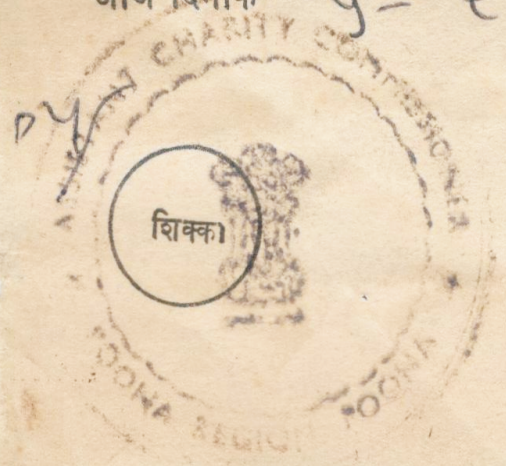 आज दिनांक 9 -
Dy
ASSISTANT CHARITY COMMISSIONER
शिक्का
POONA REGION POONA